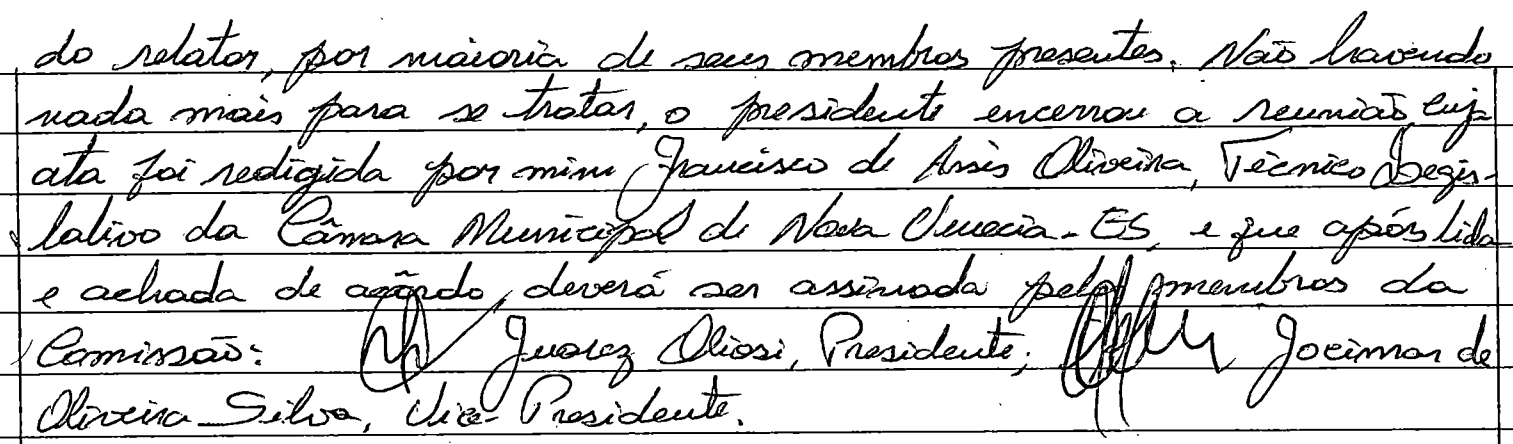 do relator, por maioria de seus membros presentes. Não havendo
nada mais para se tratar, o presidente encerrou a reunião, cuja
ata foi redigida por mim Francisco de Assis Oliveira, Técnico Legis-
lativo da Câmara Municipal de Nova Venécia-ES, e que após lida
e achada de acôrdo, deverá ser assinada pelos membros da
Comissão: Juarez Oliosi, Presidente; Jocimar de
Oliveira Silva, Vice-Presidente.